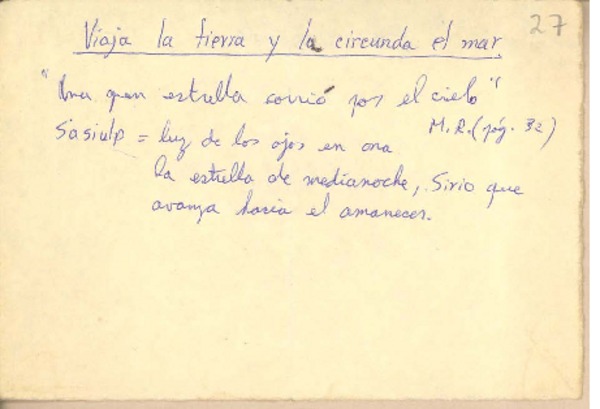 27
Viaja la tierra y la circunda el mar,
"Una gran estrella corrió por el cielo"
M. R. (pág. 32)
Sasiulp = luz de los ojos en ona
la estrella de medianoche, Sirio que
avanza hacia el amanecer.